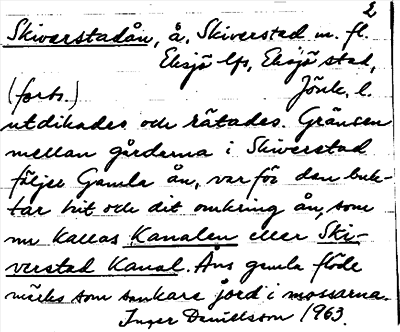 2
Skiverstadån, å, Skiverstad m. fl.
Eksjö lfs, Eksjö stad,
Jönk. l.
(forts.)
utdikades och rätades. Gränsen
mellan gårderna i Skiverstad
följer Gamla ån, varför den buk-
tar hit och dit omkring ån, som
nu kallas Kanalen eller Ski-
verstad Kanal. Åns gamla flöde
märks som sankare jord i mossarna.
Inger Danielsson 1963.